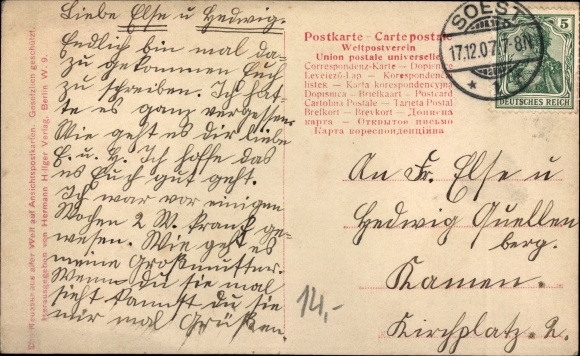 Liebe Else u Hedwig.
Endlich bin mal da-
zu gekommen Euch
zu schreiben. Ich hat-
te es ganz vergessen.
Wie geht es dir liebe
E. u. H. Ich hoffe das
es Euch gut geht.
Ich war vor einigen
Wochen 2 W. krank ge-
wesen. Wie geht es
meine Großmutter.
Wenn du sie mal
sieht kannst du sie
mir mal Grüßen.
aus aller Welt auf Ansichtspostkarten. Gesetzlich geschützt.
Herausgegeben von Hermann Hillger Verlag, Berlin W. 9.
Postkarte - Cartepostale
Weltpostverein
Union postale universelle
Correspondenz-Karte - Dopisnice
Levelező-Lap - Korespondenz-
listek - Karta korespondencyjna
Dopisnica - Briefkaart - Postcard
Cartolina Postale - Tarjeta Postal
Brefkort - Brevkort - Дописна
карта - Открытое письмо
Карта кореспонденциина
SOEST
17.12.07.7-8N
5
DEUTSCHES REICH
An Fr. Else u
Hedwig Quellen
berg.
Kamen.
Kirchplatz. 2.
14,-